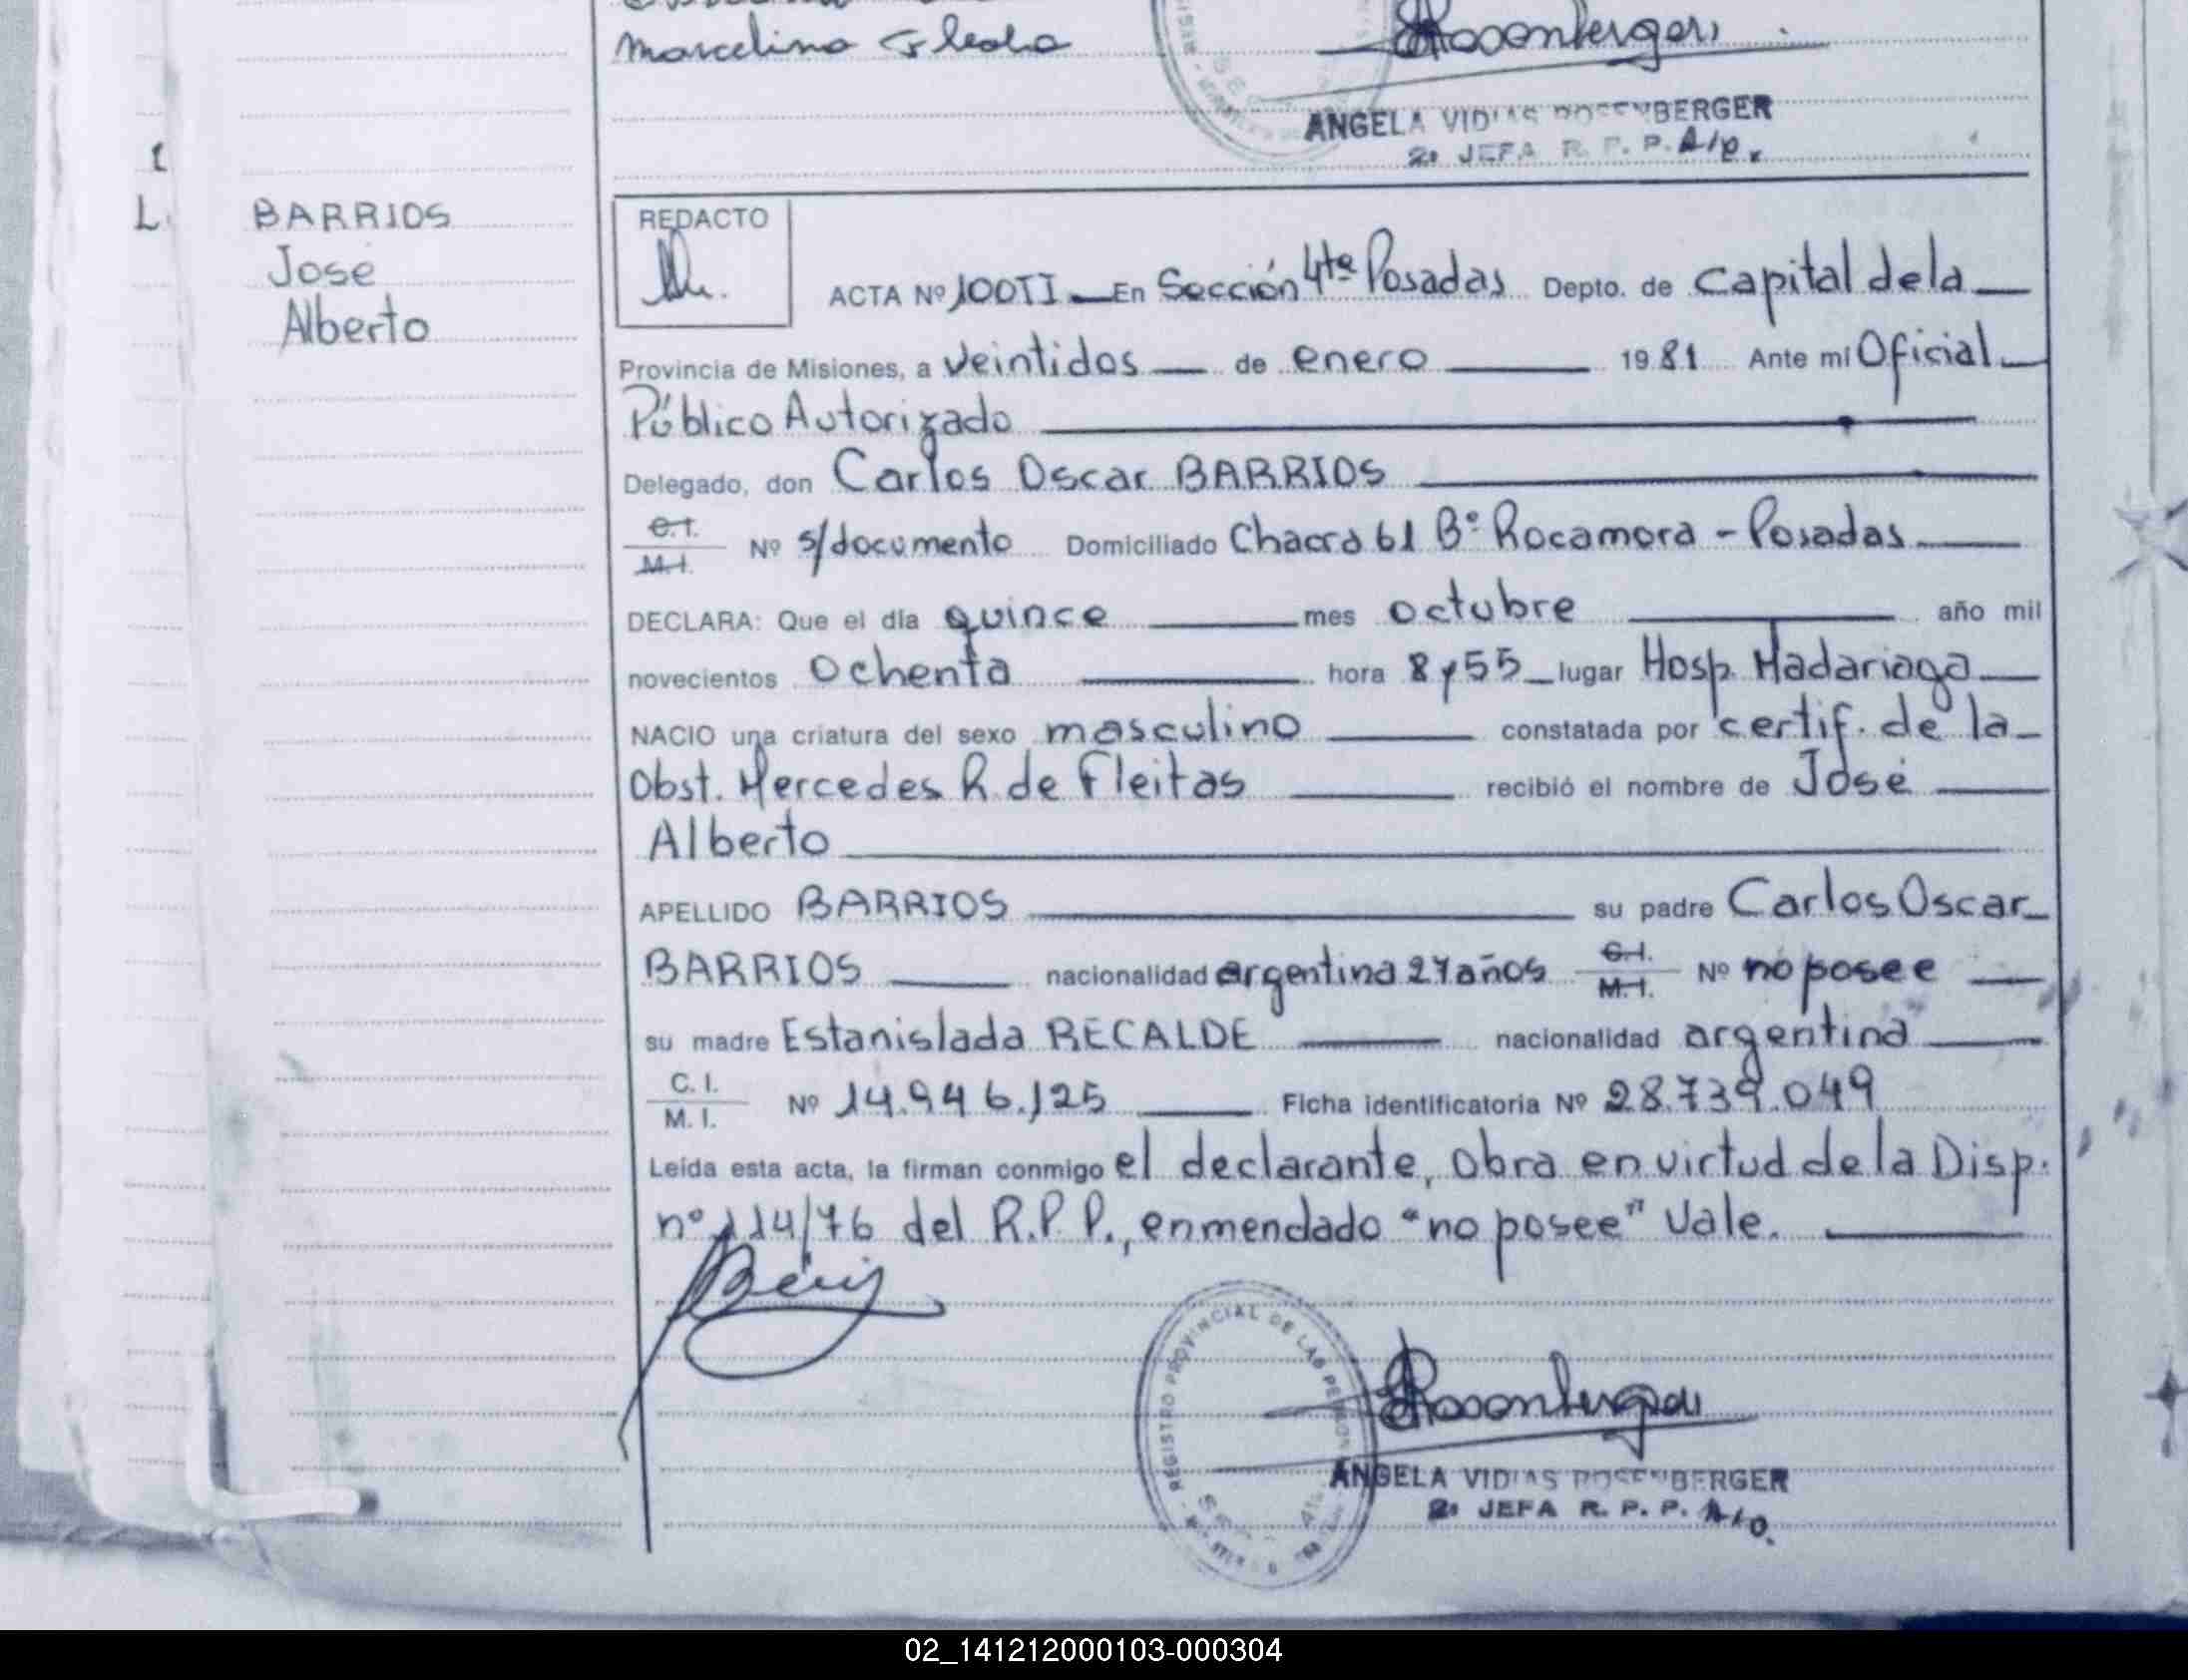 Marcelino
ANGELA VIDIAS ROSENBERGER
2ª JEFA R. P. P. A/c.
L.
BARRIOS
Jose
Alberto
REDACTO
ACTA Nº 100 TI En Sección 4ta Posadas Depto. de Capital de la
Provincia de Misiones, a veintidos de enero 1981 Ante mí Oficial
Público Autorizado
Delegado, don Carlos Oscar BARRIOS
C.I.
M.I. Nº s/documento Domiciliado Chacra 61 Bº Rocamora - Posadas
DECLARA: Que el día quince mes octubre año mil
novecientos ochenta hora 8 y 55 lugar Hosp. Madariaga
NACIO una criatura del sexo masculino constatada por certif. de la
Obst. Mercedes R. de Fleitas recibió el nombre de José
Alberto
APELLIDO BARRIOS su padre Carlos Oscar
BARRIOS nacionalidad argentina años C.I. M.I. Nº no posee
su madre Estanislada RECALDE nacionalidad argentina
C. I.
M. I. Nº 14.946.125 Ficha identificatoria Nº 28.739.049
Leída esta acta, la firman conmigo el declarante, obra en virtud de la Disp.
nº 114/76 del R.P.P., enmendado "no posee" Vale.
REGISTRO PROVINCIAL DE LAS PERSONAS
ANGELA VIDIAS ROSENBERGER
2ª JEFA R. P. P. A/c.
02_141212000103-000304